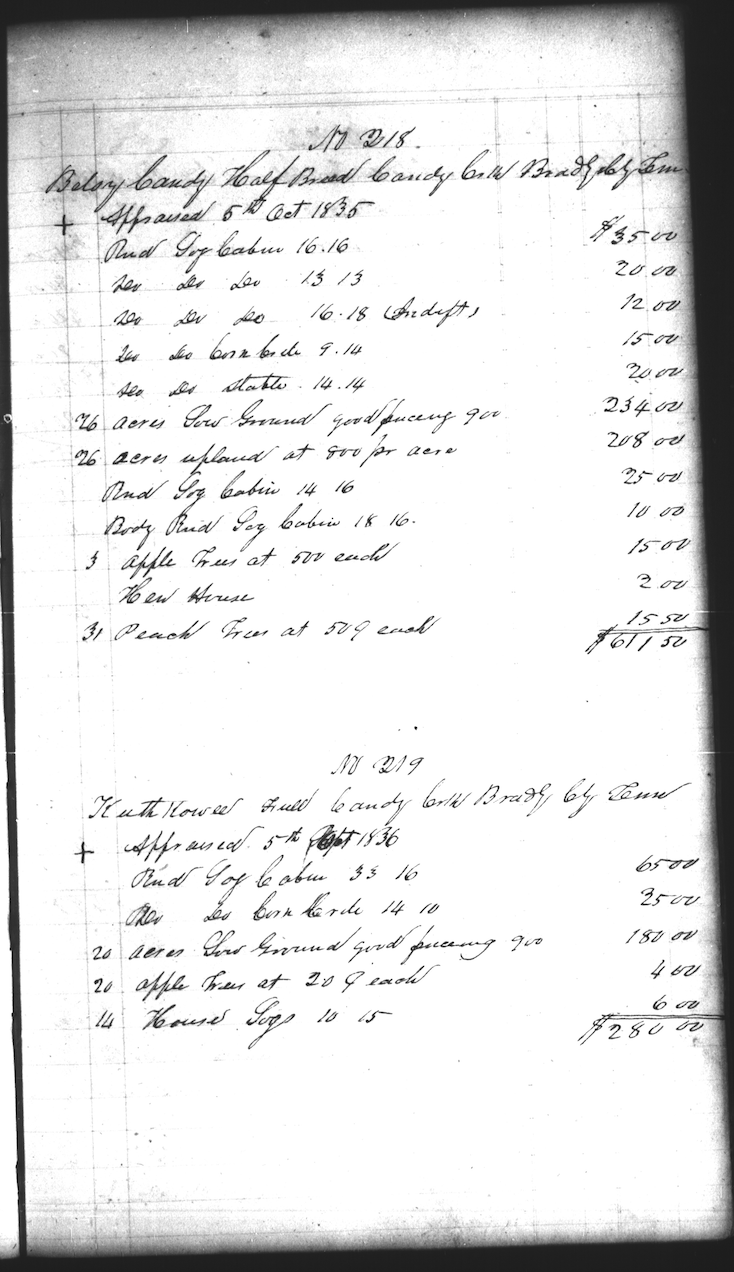 No 218.
Betsy Candy Half Breed Candy Crk Bradly Cty Tenn.
+ Appraised 5th Oct 1835
Rnd Log Cabin 16.16 $35 00
Do Do Do 13 13 20 00
Do Do Do 16.18 (Indift) 12 00
Do Do Corn Crib 9.14 15 00
Do Do Stable. 14.14 20 00
26 acres Low Ground good fenceing 900 234 00
26 acres upland at 800 pr acre 208 00
Rnd Log Cabin 14 16 25 00
Body Rnd Log Cabin 18 16. 10 00
3 apple Trees at 500 each 15 00
Hen House 2 00
31 Peach Trees at 50 ¢ each 15 50
$611 50
No 219
Full Candy Crk Bradly Cty Tenn
+ Appraised. 5th 1836
Rnd Log Cabin 33 16 65 00
Do Do Corn Crib 14 10 25 00
20 acres Low Ground good fenceing 900 180 00
20 apple Trees at 20 ¢ each 4 00
14 House Logs 10 15 6 00
$280 00